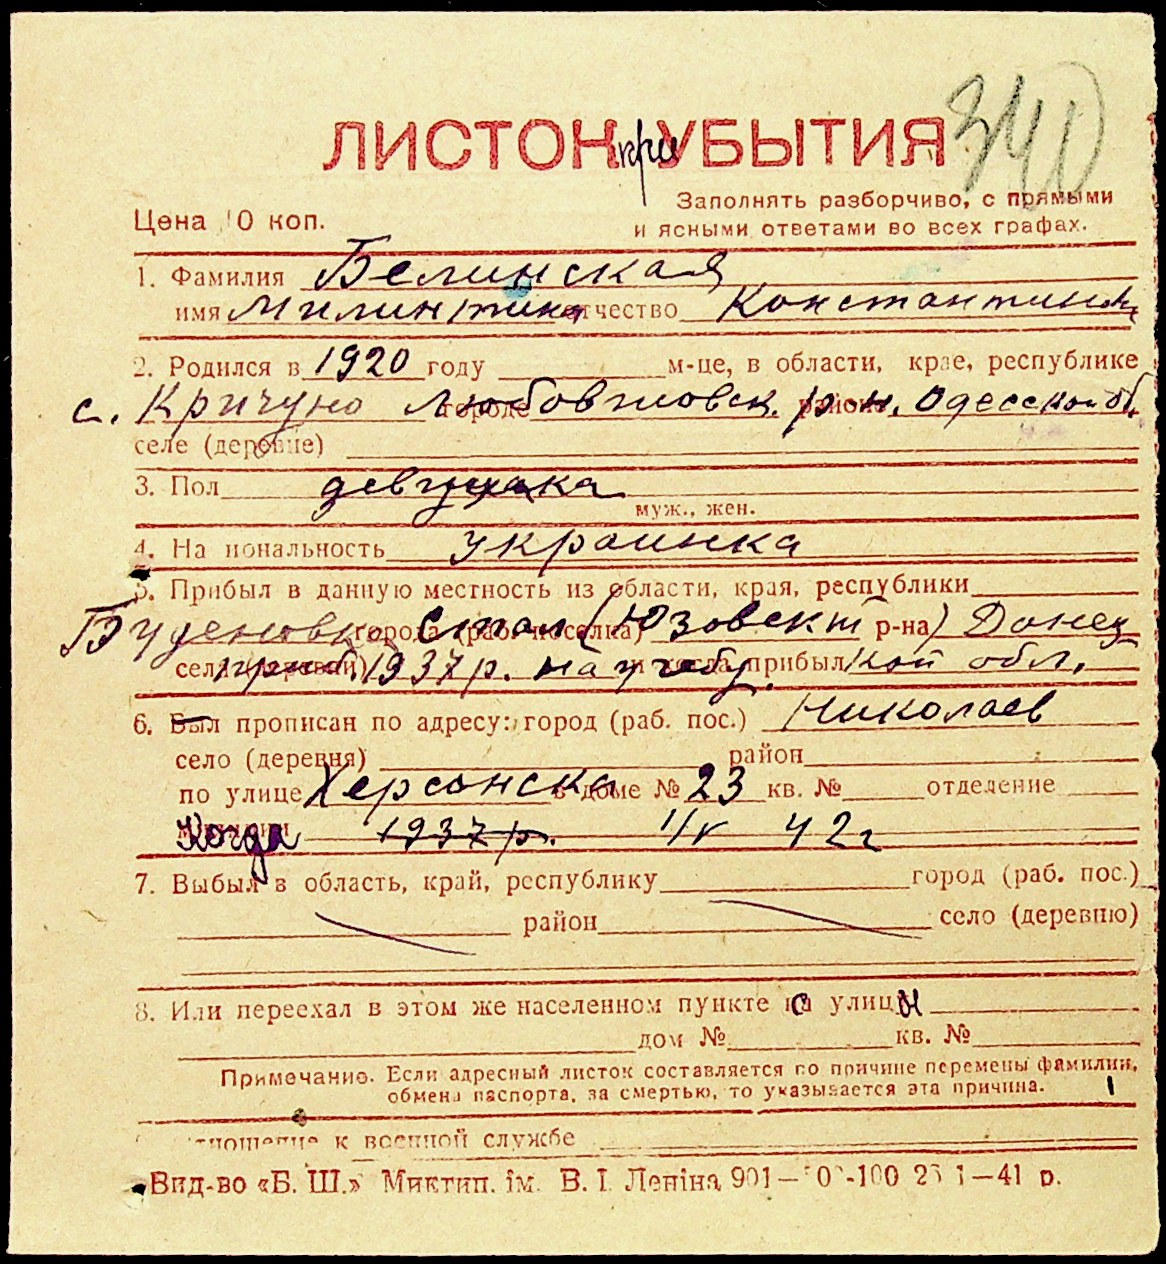 340
ЛИСТОК при УБЫТИЯ
Заполнять разборчиво, с прямыми
Цена 10 коп.
и ясными ответами во всех графах.
1. Фамилия Белинская
имя Милинтина отчество Константинов
2. Родился в 1920 году м-це, в области, крае, республике
с. Кричуно Любовшовск. городе р-н. районе Одесской об.
селе (деревне)
3. Пол девушка
муж., жен.
4. На иональность украинка
5. Прибыл в данную местность из области, края, республики
Буденовка города (раб. поселка) Стал (Юзовскт р-на) Донец
села (деревни) приб. 1937 р. на учебу. и когда прибыл кой обл.
6. Был прописан по адресу: город (раб. пос.) Николаев
село (деревня) район
по улице Херсонска в доме № 23 кв. № отделение
милиции Когда 1937 р. 1/V 42 г
7. Выбыл в область, край, республику город (раб. пос.)
район село (деревню)
8. Или переехал в этом же населенном пункте с улицы
дом № кв. №
Примечание. Если адресный листок составляется по причине перемены фамилии,
обмена паспорта, за смертью, то указывается эта причина.
тношение к военной службе
Вид-во «Б. Ш.» Миктип. ім. В. І. Леніна 901— -100 1—41 р.